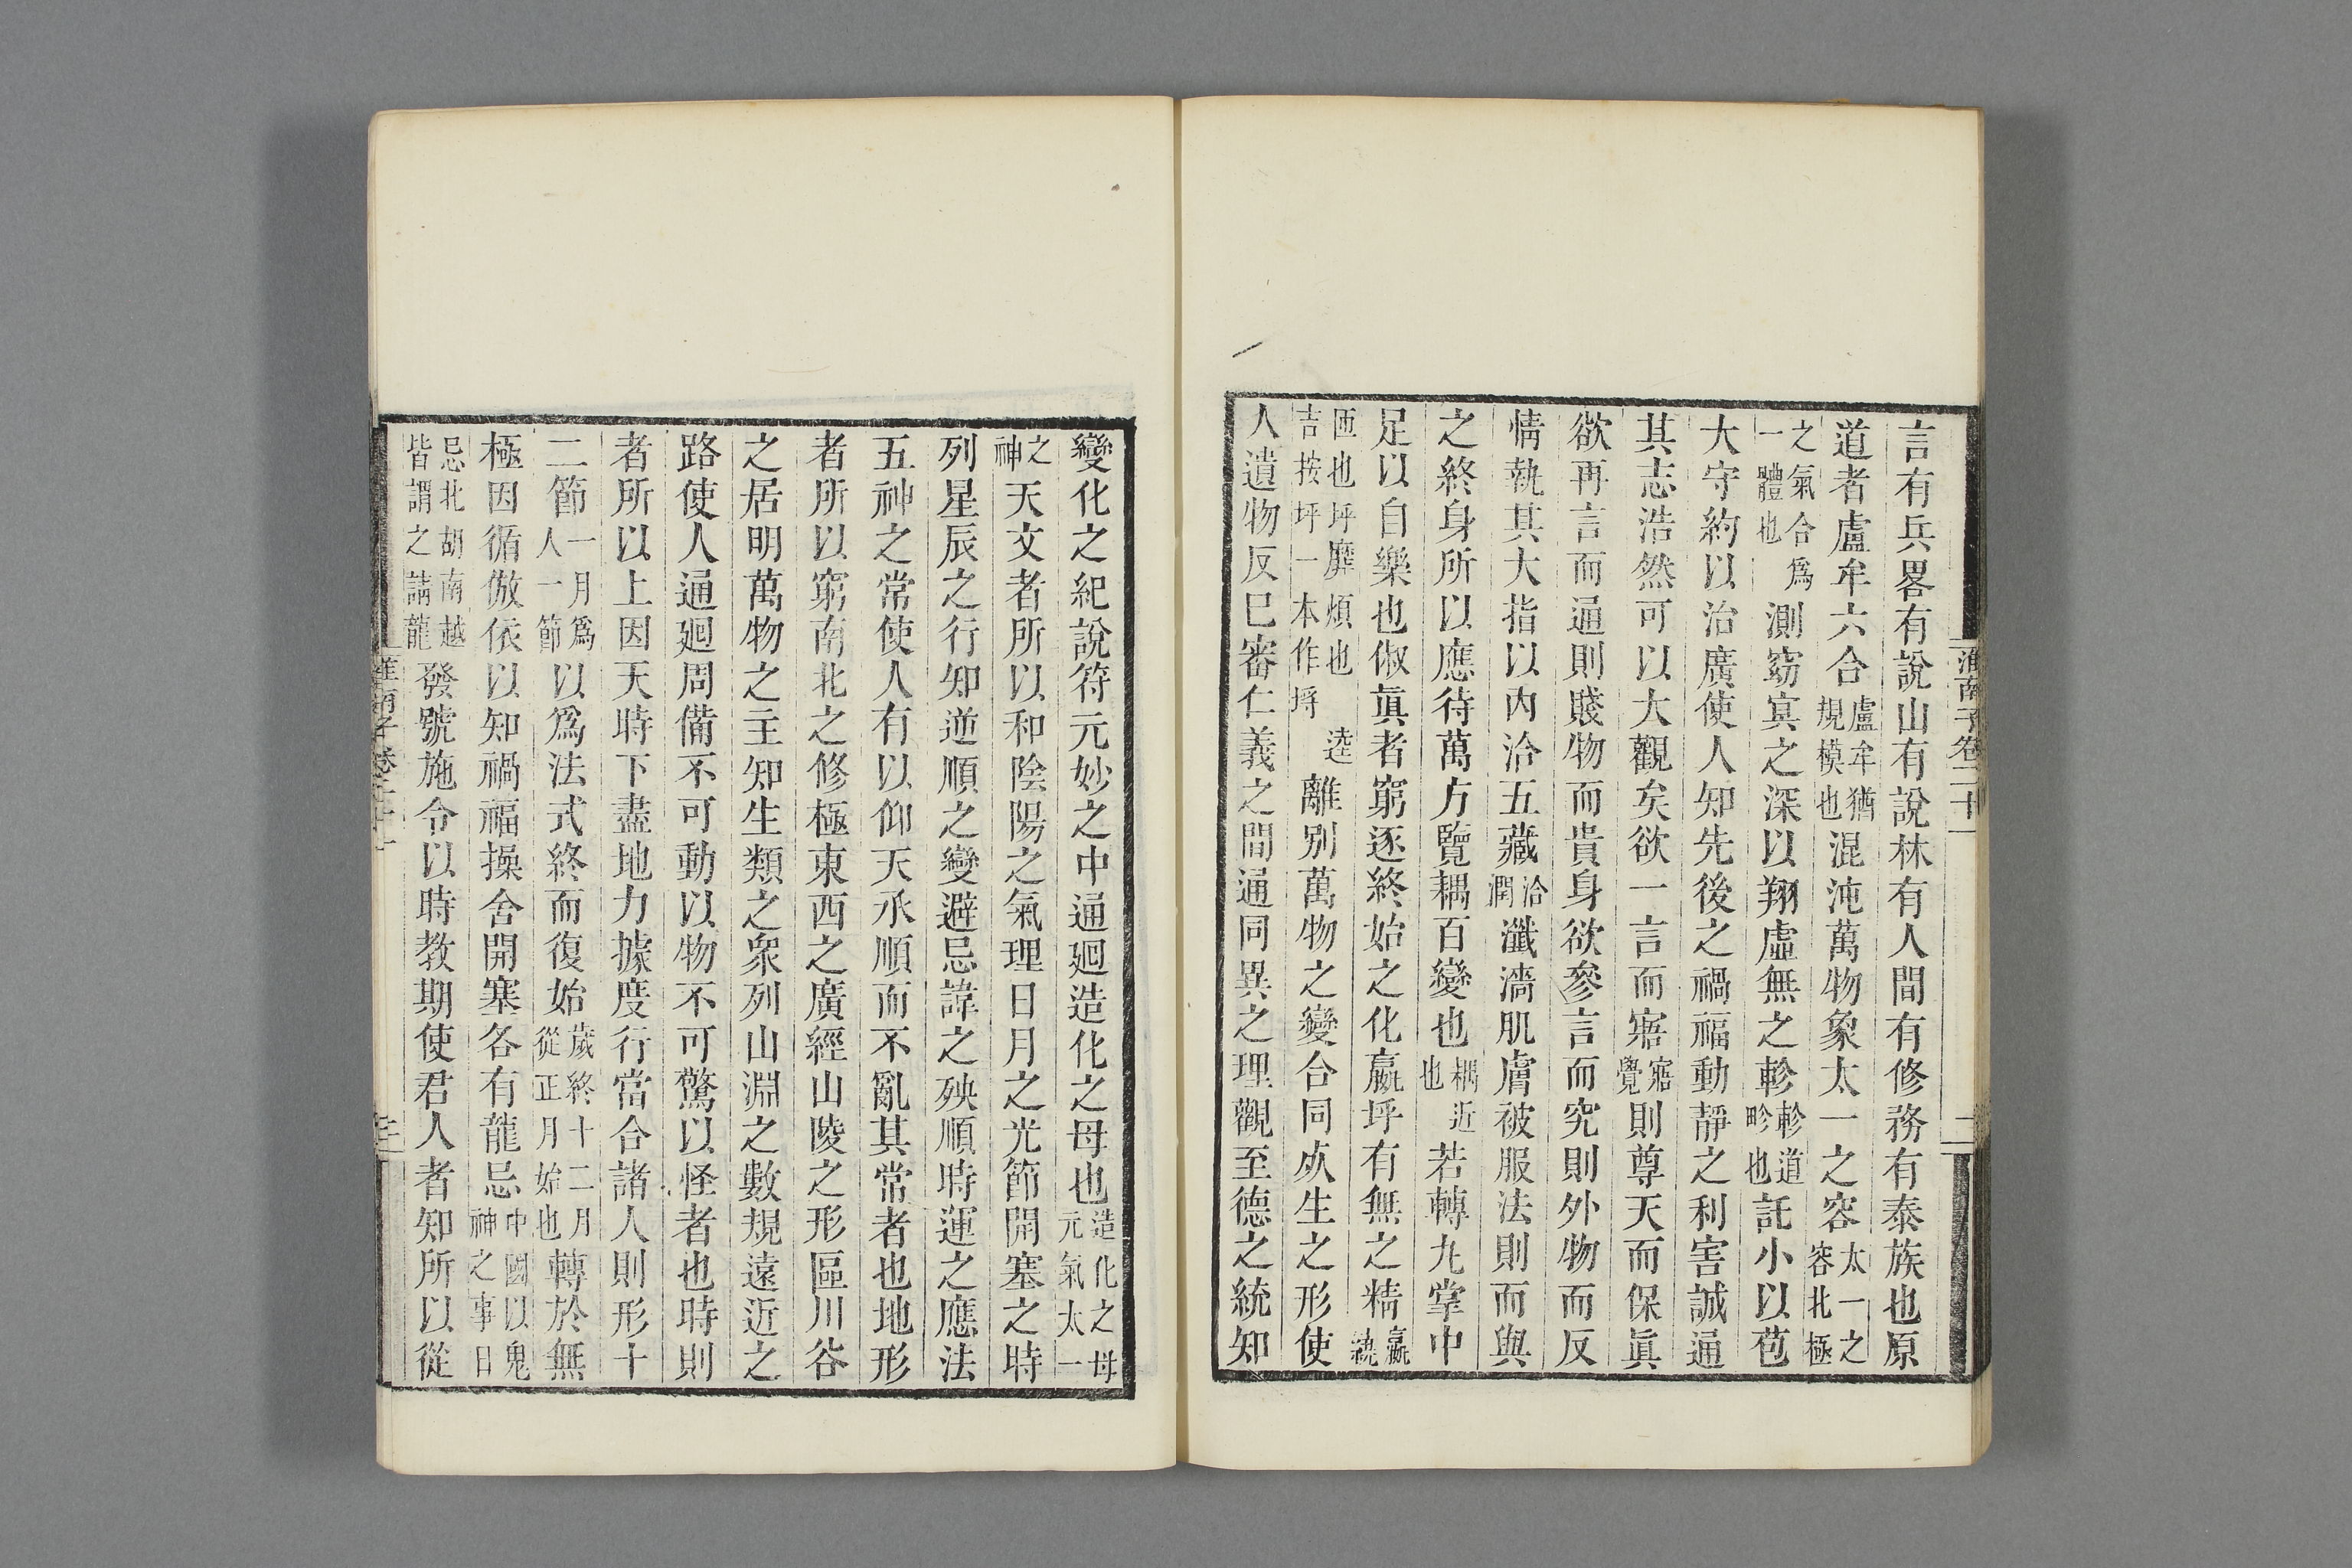 淮南子卷二十一
二
言有兵畧有說山有說林有人間有修務有泰族也原
道者盧牟六合盧牟猶規模也混沌萬物象太一之容太一之容北極
之氣合爲一體也測窈冥之深以翔虛無之軫軫道畛也託小以苞
大守約以治廣使人知先後之禍福動靜之利害誠通
其志浩然可以大觀矣欲一言而寤寤覺則尊天而保眞
欲再言而通則賤物而貴身欲參言而究則外物而反
情執其大指以內洽五藏洽潤瀸濇肌膚被服法則而與
之終身所以應待萬方覽耦百變也耦近也若轉丸掌中
足以自樂也俶眞者窮逐終始之化嬴坪有無之精嬴繞
匝也坪靡煩也逵吉按坪一本作捋離別萬物之變合同㱾生之形使
人遺物反已審仁義之間通同異之理觀至德之統知
變化之紀說符元妙之中通廻造化之母也造化之母元氣太一
之神天文者所以和陰陽之氣理日月之光節開塞之時
列星辰之行知逆順之變避忌諱之殃順時運之應法
五神之常使人有以仰天承順而不亂其常者也地形
者所以窮南北之修極東西之廣經山陵之形區川谷
之居明萬物之主知生類之衆列山淵之數規遠近之
路使人通廻周備不可動以物不可驚以怪者也時則
者所以上因天時下盡地力據度行當合諸人則形十
二節一月爲人一節以爲法式終而復始歲終十二月從正月始也轉於無
極因循倣依以知禍福操舍開塞各有龍忌中國以鬼神之事日
忌北胡南越皆謂之請龍發號施令以時教期使君人者知所以從
淮南子卷二十一
三